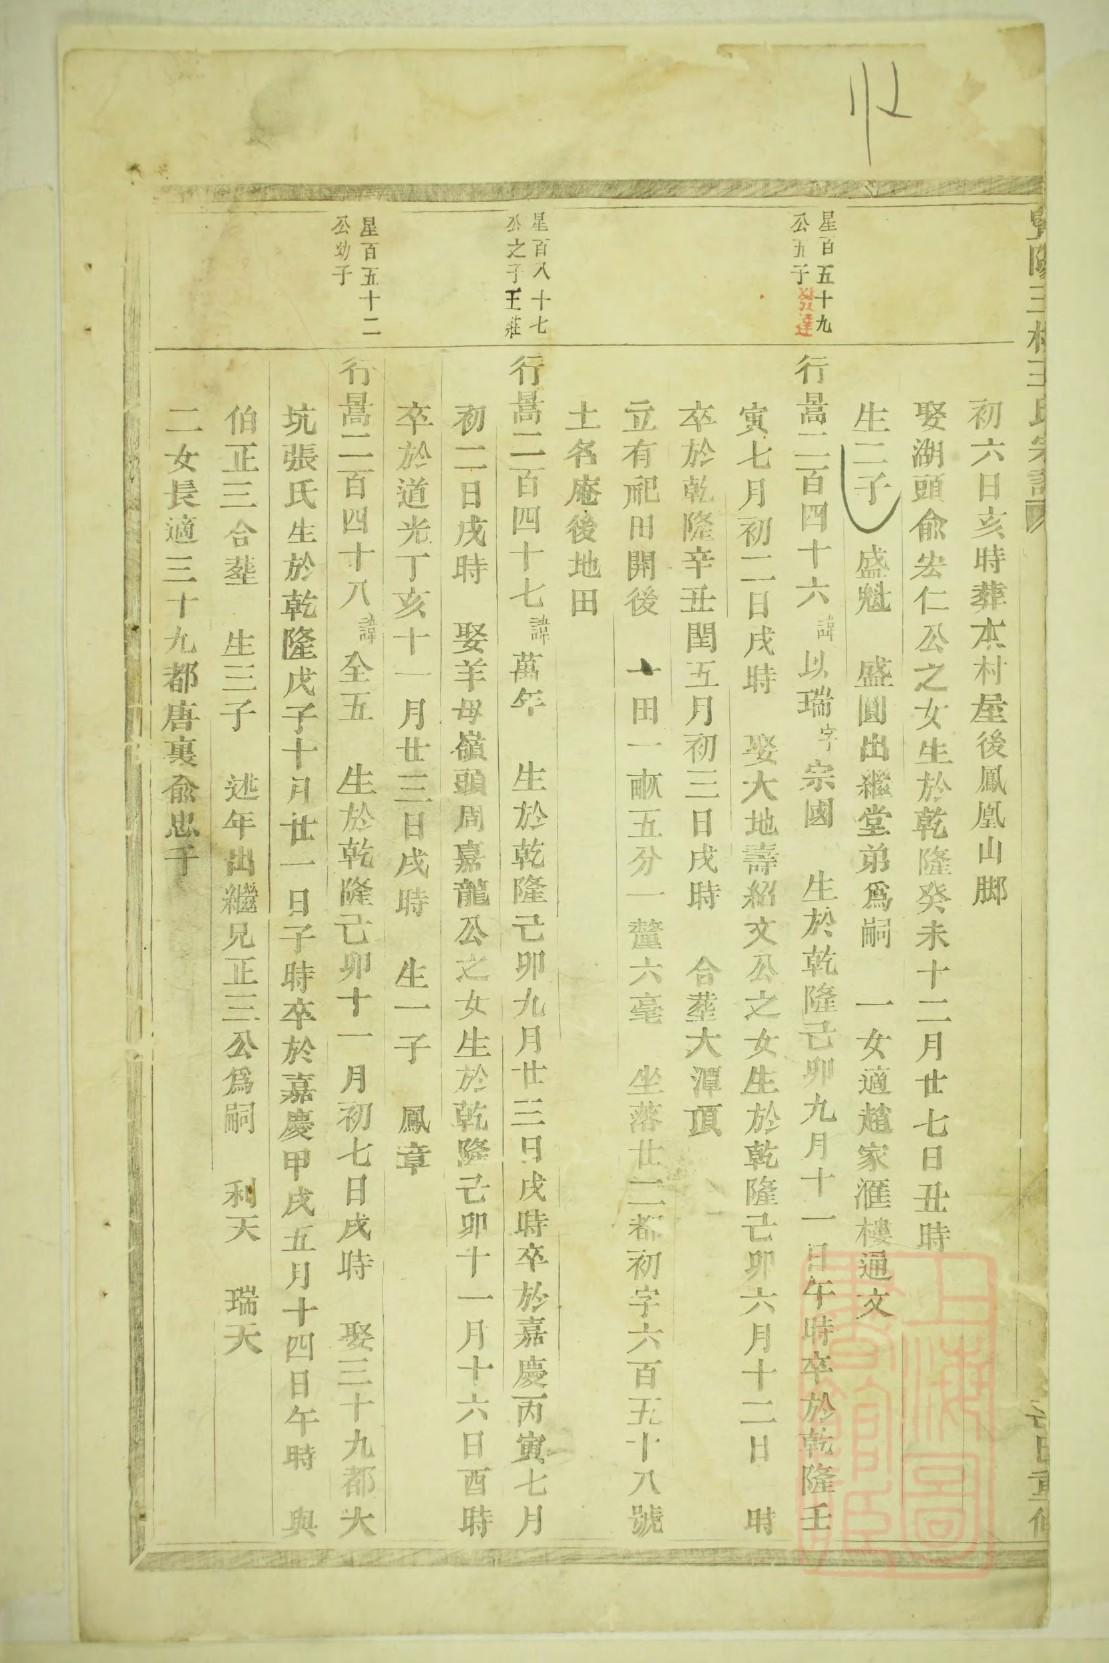 初六日亥時葬本村屋後鳳凰山脚
娶湖頭俞宏仁公之女生於乾隆癸未十二月廿七日丑時
生二子 盛魁 盛圓出繼堂弟爲嗣 一女適趙家滙樓通文
星百五十九
公五子發達
行暠二百四十六諱以瑞字宗國 生於乾隆己卯九月十一日午時卒於乾隆壬
寅七月初二日戌時 娶大地壽紹文公之女生於乾隆己卯六月十二日 時
卒於乾隆辛丑閏五月初三日戌時 合塟大潭頂
立有祀田開後 一田一畝五分一釐六毫 坐落廿二都初字六百五十八號
土名庵後地田
星百八十七
公之子王莊
行暠二百四十七諱萬年 生於乾隆己卯九月廿三日戌時卒於嘉慶丙寅七月
初二日戌時 娶羊母嶺頭周嘉龍公之女生於乾隆己卯十一月十六日酉時
卒於道光丁亥十一月廿三日戌時 生一子 鳳章
星百五十二
公幼子
行暠二百四十八諱全五 生於乾隆己卯十一月初七日戌時 娶三十九都大
坑張氏生於乾隆戊子十月廿一日子時卒於嘉慶甲戌五月十四日午時 與
伯正三合塟 生三子 述年出繼兄正三公爲嗣 利天 瑞天
二女長適三十九都唐裏俞忠千